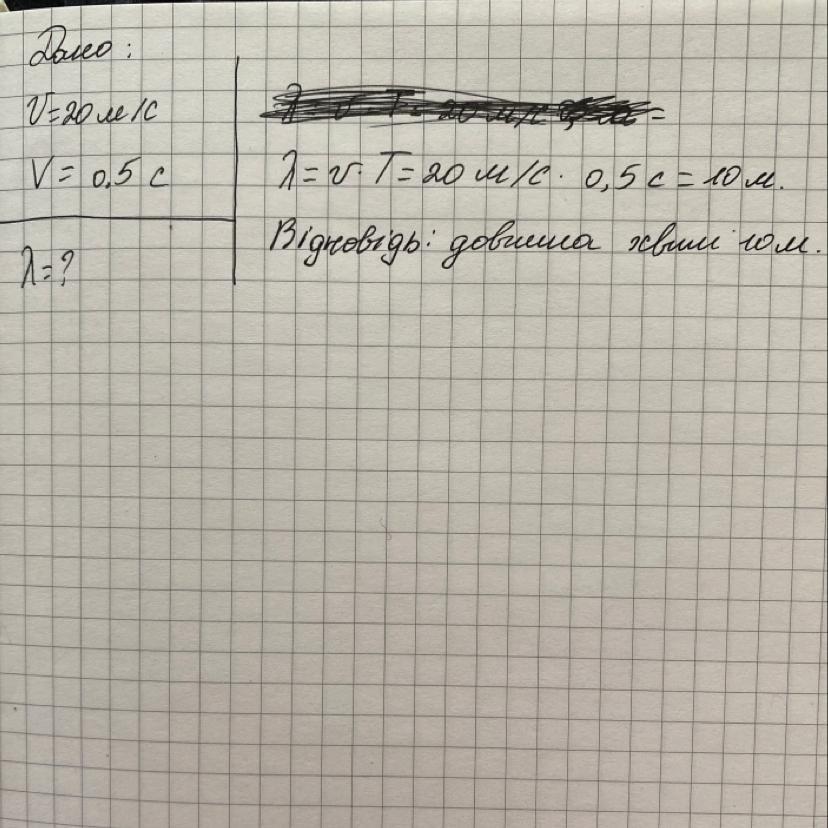 Дано:
V=20 м/с
V= 0,5 с
λ=?
λ = v · T = 20 м/с =
λ = v · T = 20 м/с · 0,5 с = 10 м.
Відповідь: довжина хвилі 10 м.